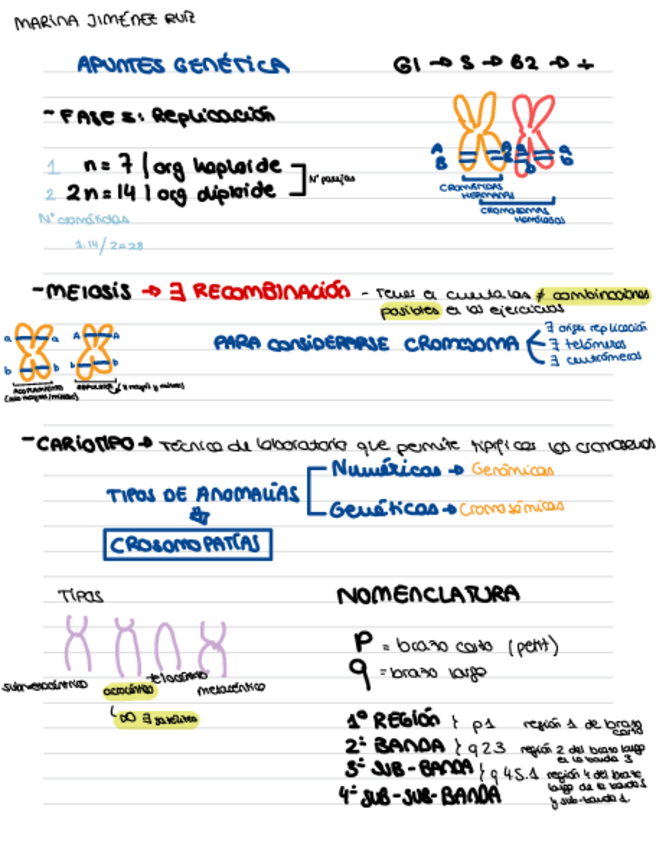 MARINA JIMÉNEZ RUIZ
APUNTES GENÉTICA
G1 → S → G2 → +
- FASE S: Replicación
1 n = 7 | org haploide
2 2n = 14 | org diploide
Nº parejas
Nº cromátidas
1.14/2=28
A B A B A b a b
CROMÁTIDAS HERMANAS
CROMOSOMAS HOMÓLOGOS
- MEIOSIS → ∃ RECOMBINACIÓN - Tener en cuenta las ≠ combinaciones
posibles en los ejercicios
a a A A
b b b b
ACOPLAMIENTO
REPULSIÓN
PARA CONSIDERARSE CROMOSOMA
∃ origen replicación
∃ telómeros
∃ centrómeros
- CARIOTIPO → Técnica de laboratorio que permite tipificar los cromosomas
TIPOS DE ANOMALÍAS
Numéricas → Genómicas
Genéticas → Cromosómicas
CROSOMOPATÍAS
TIPOS
submetacéntrico
acrocéntrico
telocéntrico
metacéntrico
∞ ∃ satélites
NOMENCLATURA
P = brazo corto (petit)
q = brazo largo
1º REGIÓN } p1 región 1 de brazo corto
2º BANDA } q23 región 2 del brazo largo en la banda 3
3º SUB-BANDA } q45.1 región 4 del brazo largo de la banda 5 y sub-banda 1.
4º SUB-SUB-BANDA